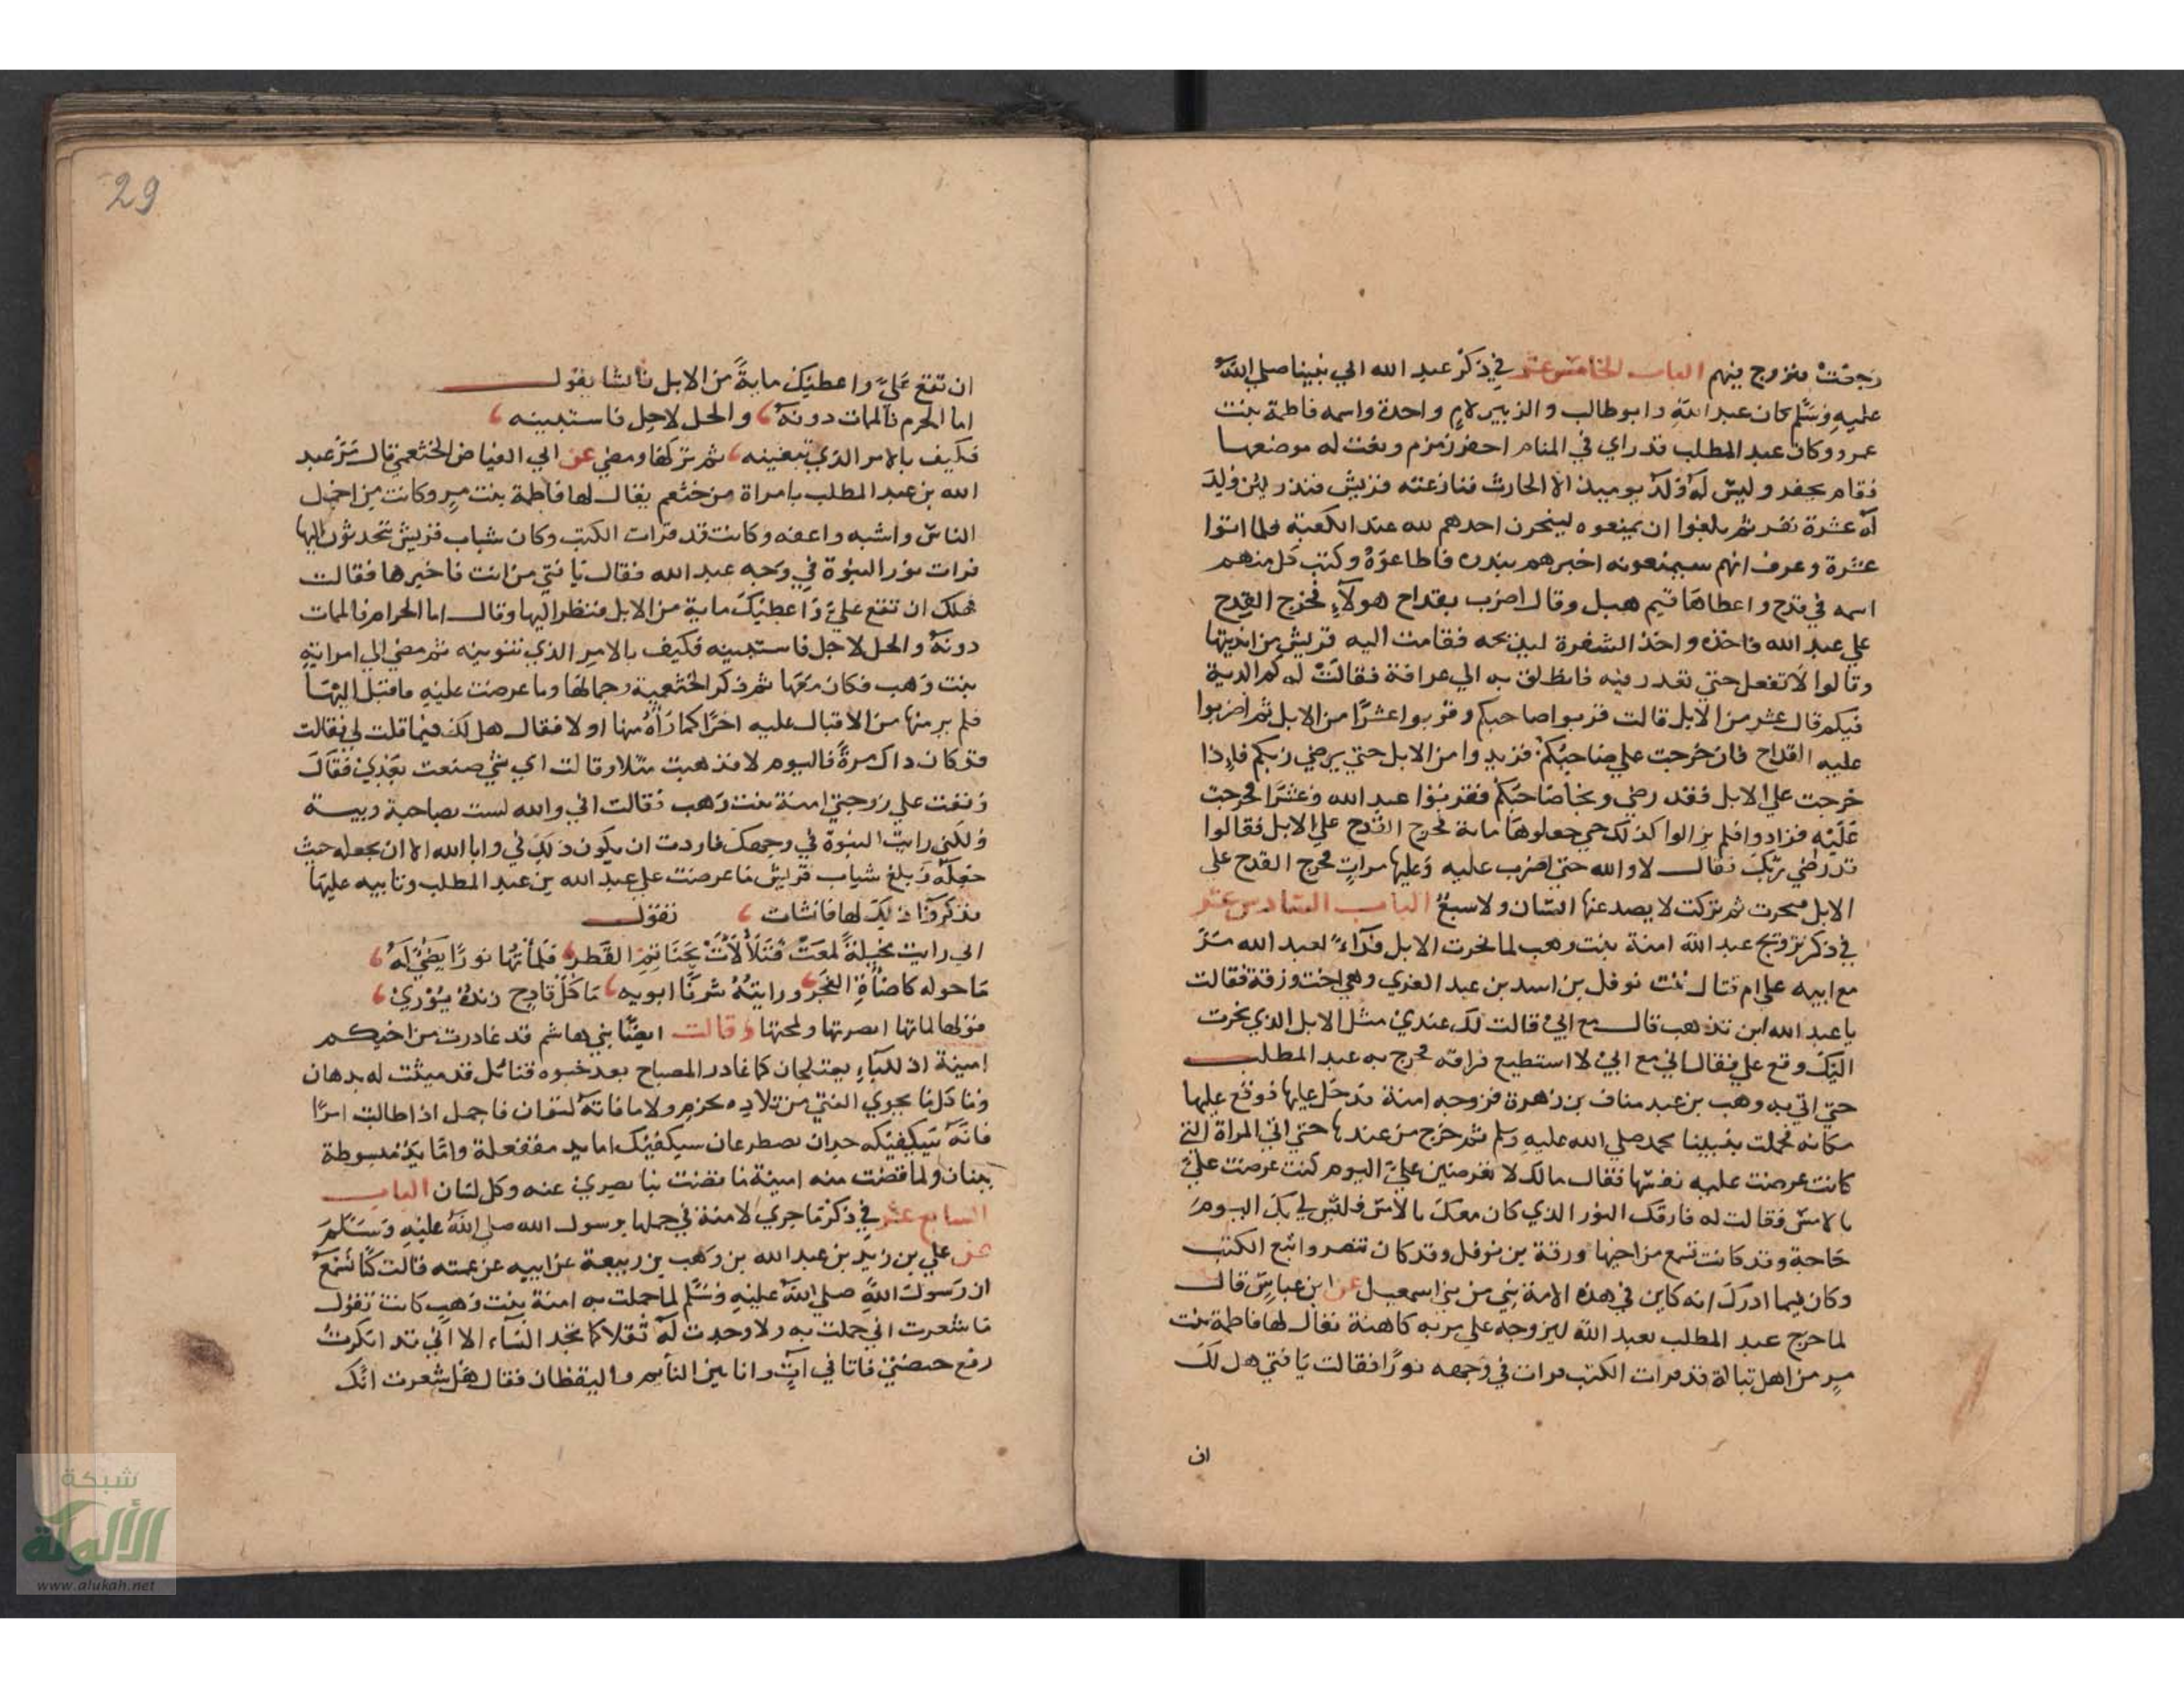 رجعت تزوج فيهم الباب الخامس عشر في ذكر عبد الله ابي نبينا صلي الله
عليه وسلم كان عبد الله وابو طالب والزبير لام واحدة واسمه فاطمة بنت
عمرو وكان عبد المطلب قد راي في المنام احفر زمزم ونعت له موضعها
فقام يحفر وليس له ولد يوميذ الا الحارث فنازعته قريش فنذر لين ولد
له عشرة نفر ثم بلغوا ان يمنعوه لينحرن احدهم لله عند الكعبة فلما اتوا
عشرة وعرف انهم سيمنعونه اخبرهم بنذره فاطاعوه وكتب كل منهم
اسمه في قدح واعطاها قيم هبل وقال اضرب بقداح هولاء فخرج القدح
علي عبد الله فاخذه واخذ الشفرة ليذبحه فقامت اليه قريش من انديتها
وقالوا لا تفعل حتي تعذر فيه فانطلق به الي عرافة فقالت له كم الدية
فيكم قال عشر من الابل قالت قربوا صاحبكم وقربوا عشرا من الابل ثم اضربوا
عليه القداح فان خرجت علي صاحبكم فزيدوا من الابل حتي يرضي ربكم فاذا
خرجت علي الابل فقد رضي ونجا صاحبكم فقربوا عبد الله وعشرا فخرجت
عليه فزادوا فلم يزالوا كذلك حتي جعلوها ماية فخرج القدح علي الابل فقالوا
قد رضي ربك فقال لا والله حتي اضرب عليه وعليها مرات فخرج القدح علي
الابل فنحرت ثم تركت لا يصد عنها انسان ولا سبع الباب السادس عشر
في ذكر تزويج عبد الله امنة بنت وهب لما نحرت الابل فداء لعبد الله مر
مع ابيه علي ام قتال بنت نوفل بن اسد بن عبد العزي وهي اخت ورقة فقالت
يا عبد الله اين تذهب قال مع ابي قالت لك عندي مثل الابل الذي نحرت
اليك وقع علي فقال اني مع ابي لا استطيع فراقه فخرج به عبد المطلب
حتي اتي به وهب بن عبد مناف بن زهرة فزوجه امنة فدخل عليها فوقع عليها
مكانه فحملت بنبينا محمد صلي الله عليه وسلم ثم خرج من عندها حتي اتي المراة التي
كانت عرضت عليه نفسها فقال مالك لا تعرضين علي اليوم كنت عرضت علي
بالامس فقالت له فارقك النور الذي كان معك بالامس فليس لي بك اليوم
حاجة وقد كانت تسمع من اخيها ورقة بن نوفل وقد كان تنصر واتبع الكتب
وكان فيما ادرك انه كاين في هذه الامة نبي من بني اسمعيل عن ابن عباس قال
لما خرج عبد المطلب بعبد الله ليزوجه علي مر به كاهنة يقال لها فاطمة بنت
مر من اهل تبالة قد قرات الكتب فرات في وجهه نورا فقالت يا فتي هل لك
ان
29
ان تقع علي واعطيك ماية من الابل فانشا يقول
اما الحرم فالممات دونه والحل لاحل فاستبينه
فكيف بالامر الذي تبغينه ثم تركها ومضي عن ابي الفياض الخثعمي قال مر عبد
الله بن عبد المطلب بامراة من خثعم يقال لها فاطمة بنت مر وكانت من اجمل
الناس واشبه واعفه وكانت قد قرات الكتب وكان شباب قريش تتحدثون اليها
فرات نور النبوة في وجه عبد الله فقال يا فتي من انت فاخبرها فقالت
هل لك ان تقع علي واعطيك ماية من الابل فنظر اليها وقال اما الحرام فالممات
دونه والحل لاحل فاستبينه فكيف بالامر الذي تنوينه ثم مضي الي امراته
بنت وهب فكان معها ثم ذكر الخثعمية وجمالها وما عرضت عليه فاقبل اليها
فلم ير منها من الاقبال عليه اخرا كما راه منها اولا فقال هل لك فيما قلت لي فقالت
قد كان ذاك مرة فاليوم لا فذهبت مثلا وقالت اي شي صنعت بعدي فقال
وقعت علي زوجتي امنة بنت وهب فقالت اني والله لست بصاحبة ريبة
ولكني رايت النبوة في وجهك فاردت ان يكون ذلك في وابا الله الا ان يجعله حيث
جعله وبلغ شباب قريش ما عرضت علي عبد الله بن عبد المطلب وتابيه عليها
فذكروا ذلك لها فانشات تقول
اني رايت مخيلة لمعت فتلالات بحناتم القطر فلماتها نورا يضي له
ما حوله كاضاة الفجر ورايته شرفا ابوء به ما كل قادح زنده يوري
قولها لماتها ابصرتها ولمحتها وقالت ايضا بني هاشم قد غادرت من اخيكم
امينة اذ للباه يعتلجان كما غادر المصباح بعد خبوه فتائل قد ميثت له بدهان
وما كل ما يحوي الفتي من تلاده بحزم ولا ما فاته لتوان فاجمل اذا طالبت امرا
فانه سيكفيكه جدان يصطرعان سيكفيك اما يد مقفعلة واما يد مبسوطة
ببنان ولما قضت منه امينة ما قضت نبا بصري عنه وكل لسان الباب
السابع عشر في ذكر ما جري لامنة في حملها برسول الله صلي الله عليه وسلم
عن علي بن زيد بن عبد الله بن وهب بن ربيعة عن ابيه عن عمته قالت كنا نسمع
ان رسول الله صلي الله عليه وسلم لما حملت به امنة بنت وهب كانت تقول
ما شعرت اني حملت به ولا وجدت له ثقلا كما تجد النساء الا اني قد انكرت
رفع حيضتي فاتاني ات وانا بين النايم واليقظان فقال هل شعرت انك
شبكة
الألوكة
www.alukah.net